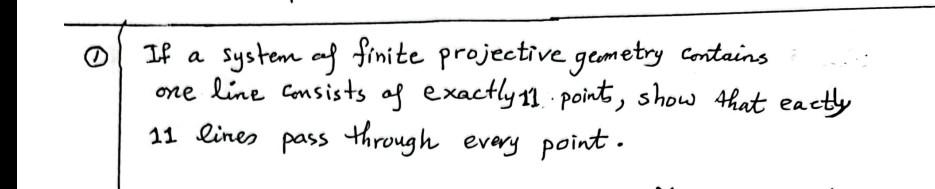 ① If a system of finite projective geometry contains
one line consists of exactly 11 points, show that eactly
11 lines pass through every point.